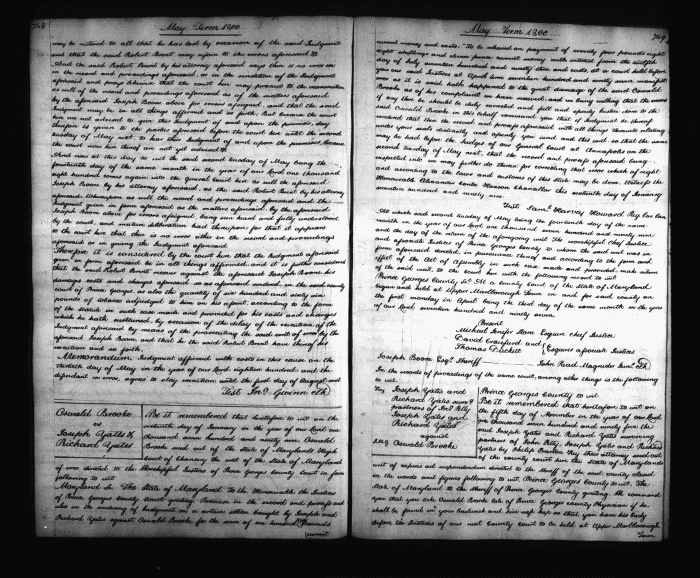 748
May Term 1800
may be restored to all that he has lost by occasion of the said Judgment
and that the said Robert Brent may rejoin to the errors aforesaid &c
And the said Robert Brent by his attorney aforesaid says there is no error
in the record and proceedings aforesaid, or in the rendition of the Judgment
aforesaid and prays likewise that the court here may proceed to the examination
as well of the record and proceedings aforesaid as of the matters aforesaid
by the aforesaid Joseph Boone above for errors assigned, and that the said
Judgment may be in all things affirmed and so forth. But because the court
here are not advised to give their Judgment of and upon the premises, day
therefore is given to the parties aforesaid before the court here until the second
tuesday of May next, to hear their Judgment of and upon the premises, because
the court now here thereof are not yet advised &c
And now at this day to wit the said second tuesday of May being the
fourteenth day of the same month in the year of our Lord one thousand
eight hundred comes again into the general court here as well the aforesaid
Joseph Boone by his attorney aforesaid, as the said Robert Brent by his attorney
aforesaid. Whereupon as well the record and proceedings aforesaid and the
Judgment given in form aforesaid as the matters aforesaid by the aforesaid
Joseph Boone above for errors assigned, being seen heard and fully understood
by the court, and mature deliberation had thereupon, for that it appears
to the court here that there is no error either in the record and proceedings
aforesaid or in giving the Judgment aforesaid.
Therefore it is considered by the court here that the Judgment aforesaid
given in form aforesaid be in all things affirmed, and it is further considered
that the said Robert Brent recover against the aforesaid Joseph Boone his
damages costs and charges aforesaid so as aforesaid rendered, in the said county
court of Prince Georges, as also the quantity of six hundred and sixty six
pounds of tobacco adjudged to him on his assent, according to the form
of the statute in such case made and provided for his costs and charges
which he hath sustained, by occasion of the delay of the execution of the
Judgment aforesaid by means of the prosecuting the said writ of error by the
aforesaid Joseph Boone, and that he the said Robert Brent have thereof his
execution and so forth.
Memorandum Judgment affirmed with costs in this cause on the
thirtieth day of May in the year of our Lord eighteen hundred and the
defendant in error, agrees to stay execution until the first day of August next
Test Jno. Gwinn Clk
Oswald Brooke
vs
Joseph Yates &
Richard Yates
Be it remembered that heretofore to wit on the
sixteenth day of January in the year of our Lord one
thousand seven hundred and ninety nine. Oswald
Brooke sued out of the state of Marylands High
Court of Chancery the writ of the state of Maryland
of error directed to the Worshipful Justices of Prince Georges County Court in form
following to wit
Maryland Sc. The State of Maryland To the Honourable the Justices
of Prince Georges county court greeting. Because in the record and process and
also in the rendering of Judgment on a certain action brought by Joseph and
Richard Yates against Oswald Brooke for the sum of one hundred Pounds
current
749
May Term 1800
current money and costs. To be released on payment of seventy four pounds eight
eight shillings and eleven pence current money with interest from the sixteenth
day of July seventeen hundred and ninety three and costs, in a court held before
you our said Justices at April term seventeen hundred and ninety seven manifest
error as it is said hath happened to the great damage of the said Oswald
Brooke as of his complaint we have received, and we being willing that the errors
if any there is should be duly corrected and full and speedy Justice done to the
said Oswald Brooke in this behalf command you that if Judgment be thereof
rendered that then the record and process aforesaid with all things thereto relating
under your seals distinctly and openly you send and this writ, so that the same
may be had before the Judges of our General Court at Annapolis on the
second tuesday of May next, that the record and process aforesaid being
inspected into we may further do therein for correcting that error which of right
and according to the laws and customs of this state may be done. Witness the
Honourable Alexander Contee Hanson Chancellor this sixteenth day of January
seventeen hundred and ninety nine
Test Saml. Harvey Howard Reg Cur Can
At which said second tuesday of May being the fourteenth day of the same
month in the year of our Lord one thousand seven hundred and ninety nine
and the day of the return of the aforegoing writ The worshipful Chief Justice
and associate Justices of Prince Georges county to whom the said writ was in
form aforesaid directed, in pursuance thereof and according to the form and
effect of the Act of Assembly in such case made and provided, make return
of the said writ, to the court here with the following record to wit
Prince Georges County Sc. At a county Court of the State of Maryland
began and held at Upper Marlborough Town in and for said county on
the first monday in April being the third day of the same month in the year
of our Lord seventeen hundred and ninety seven.
Present
Michael Jenifer Stone Esquire Chief Justice
David Craufurd and
Thomas Duckett } Esquires associate Justices
Joseph Boone Esqr. Sheriff —— John Read Magruder Junr. Clk
In the records of proceedings of the same court, among other things is the following
to wit.
Joseph Yates and
Richard Yates survg
partners of Jno Petty
Joseph Yates and
Richard Yates
against
Oswald Brooke
Prince Georges County to wit
Be it remembered that heretofore to wit on
the fifth day of November in the year of our Lord
one thousand seven hundred and ninety five the
said Joseph Yates and Richard Yates surviving
partners of John Petty, Joseph Yates and Richard
Yates by Philip Barton Key their attorney sued out
of the county court here the state of Marylands
writ of capias ad respondendum directed to the sheriff of the said county closed
in the words and figures following to wit, Prince Georges County to wit. The
State of Maryland to the sheriff of Prince Georges county greeting. We command
you that you take Oswald Brooke late of Prince Georges county Physician if he
shall be found in your bailiwick and him safe keep so that you have his body
before the Justices of our next County Court to be held at Upper Marlborough
Town